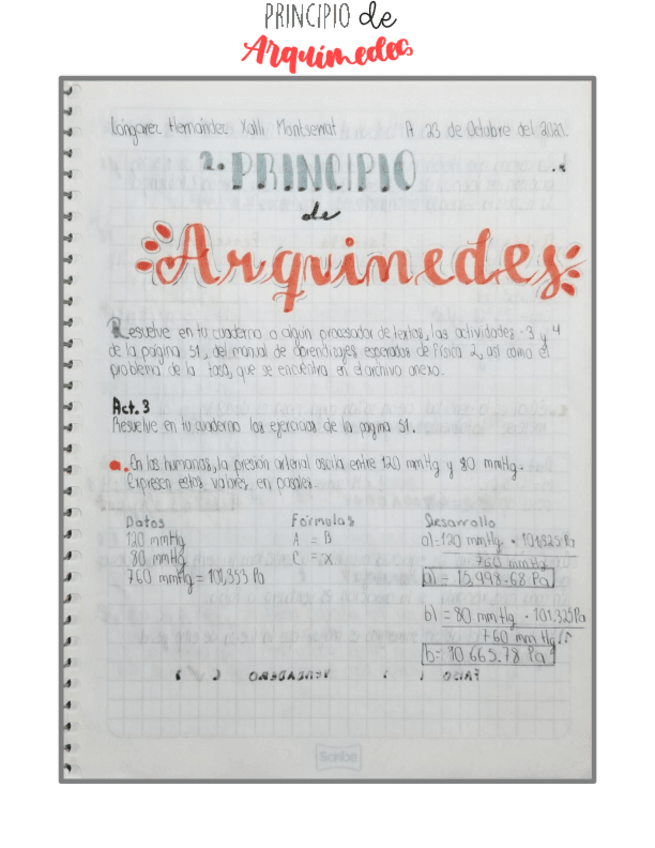 PRINCIPIO de
Arquimedes
Longarez Hernández Xalli Montserrat A 23 de Octubre del 2020.
2. PRINCIPIO
de
Arquimedes
Resuelve en tu cuaderno o algún procesador de textos, las actividades - 3 y 4
de la página 51, del manual de aprendizajes esperados de Física 2, así como el
problema de la foca, que se encuentra en el archivo anexo.
Act. 3
Resuelve en tu cuaderno los ejercicios de la pagina 51.
a. En los humanos, la presión arterial oscila entre 120 mmHg y 80 mmHg.
Expresen estos valores en pascales.
Datos Formulas Desarrollo
120 mmHg A = B a) = 120 mmHg · 101325 Pa
80 mmHg C = x 760 mmHg
760 mmHg = 101,353 Pa a) = 15,998.68 Pa
b) = 80 mmHg · 101.325 Pa
760 mm Hg
b = 10 665.78 Pa
VERDADERO ( ) FALSO ( )
Scribe